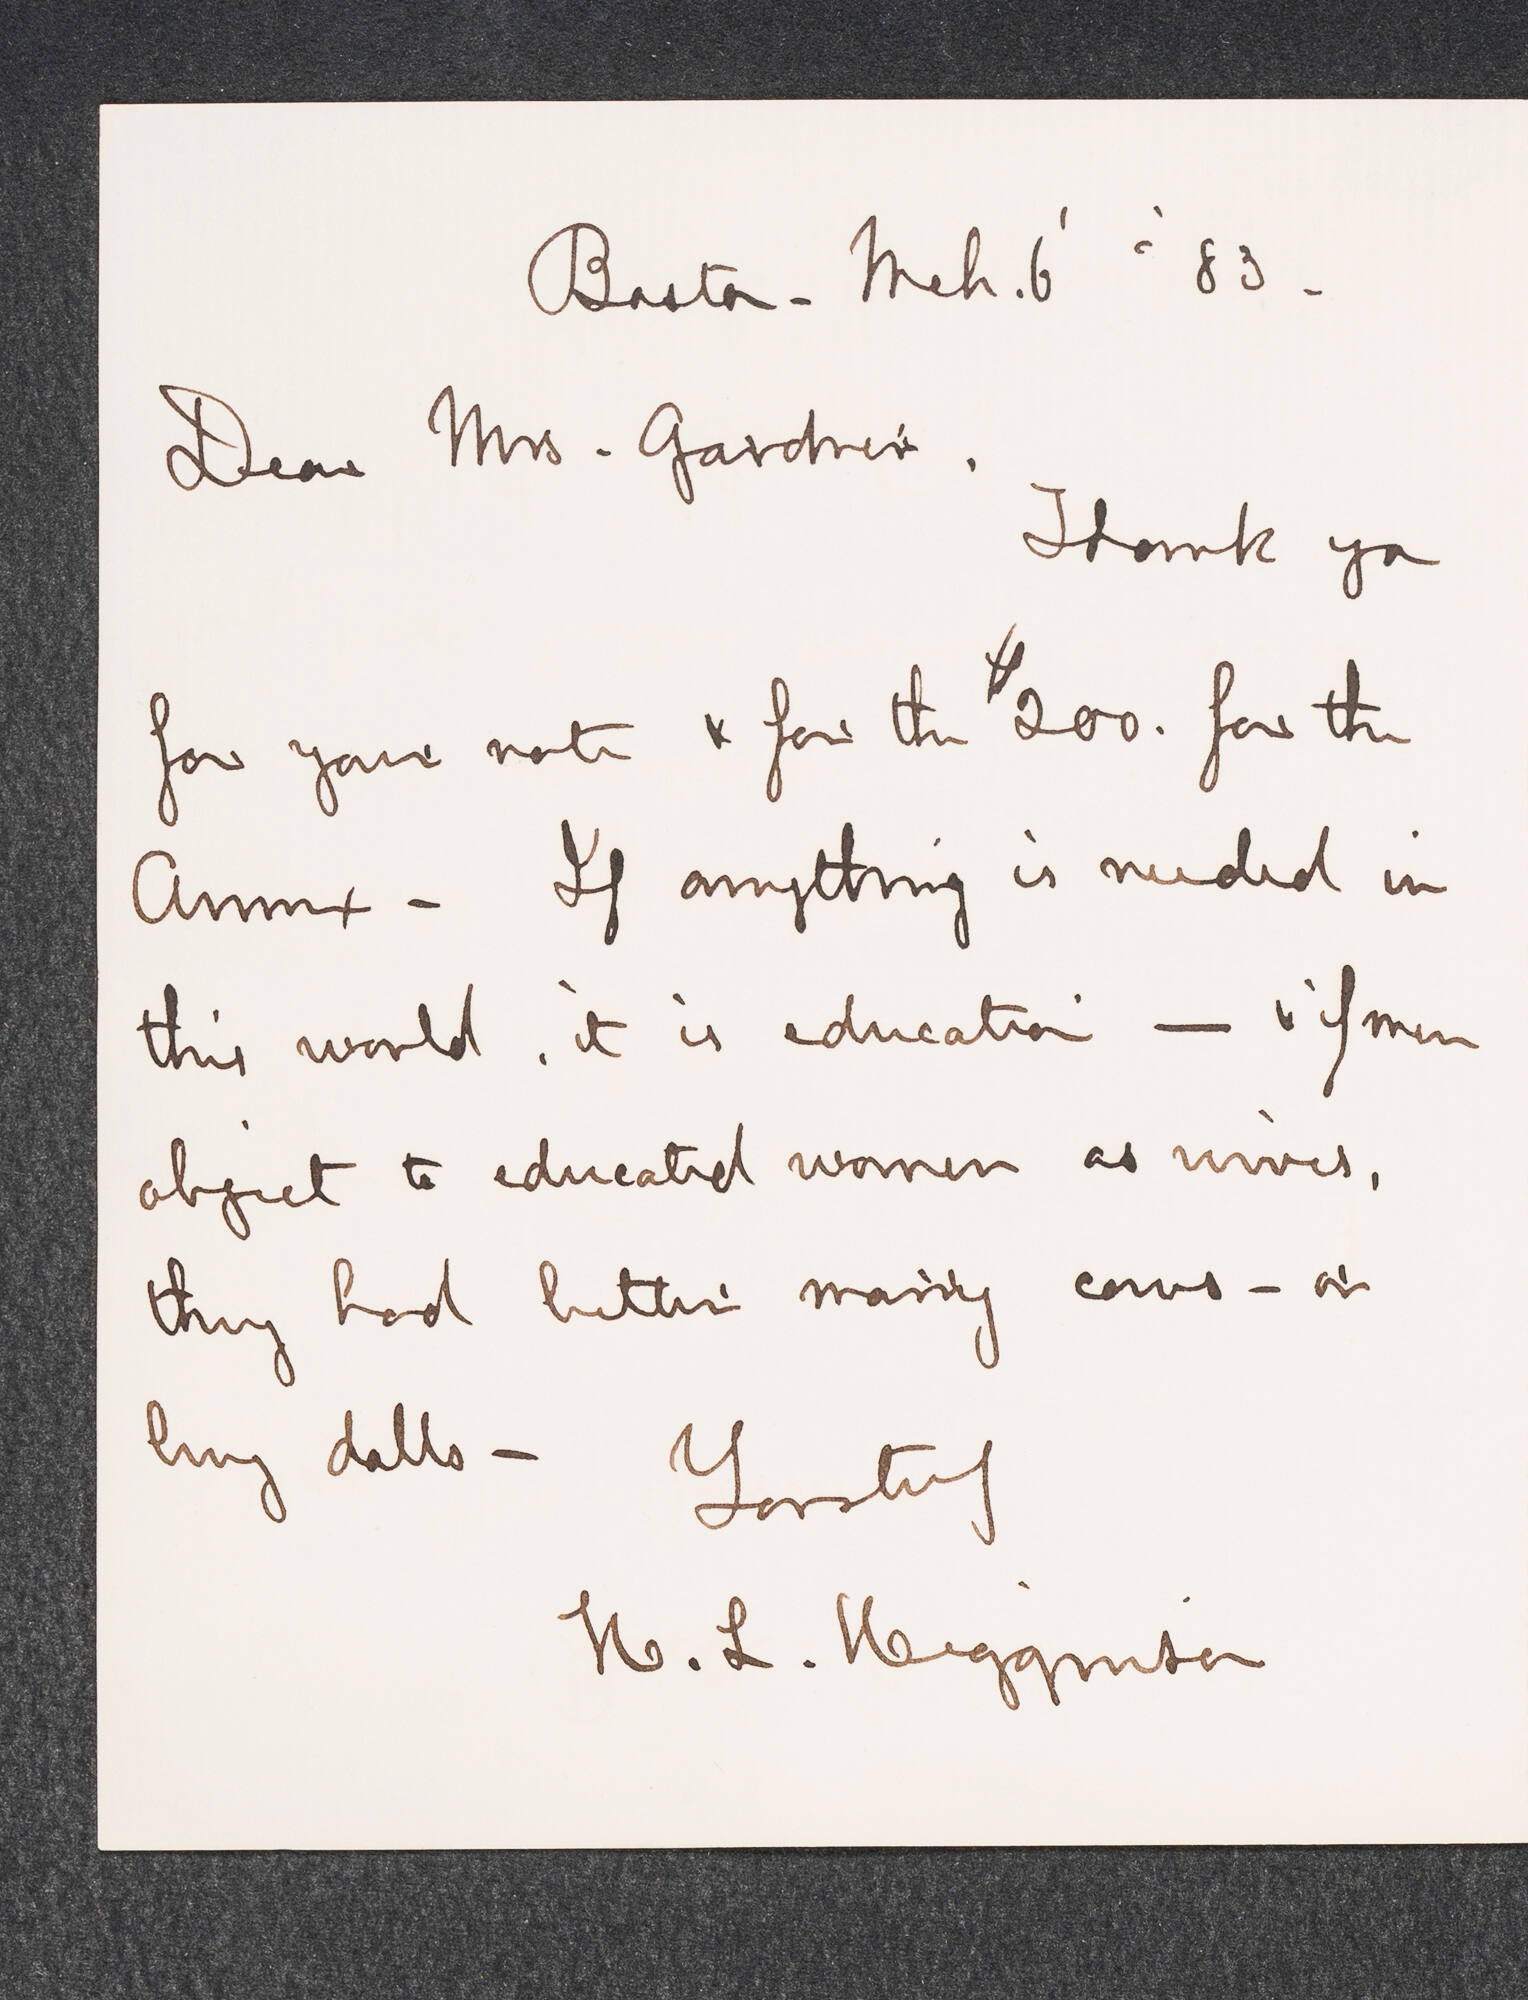 Boston - Mch. 6' '83 -
Dear Mrs. Gardner.
Thank you
for your note & for the $200. for the
Annex - If anything is needed in
this world, it is education — & if men
object to educated women as wives,
they had better marry cows - or
buy dolls -
Yrs truly
H. L. Higginson